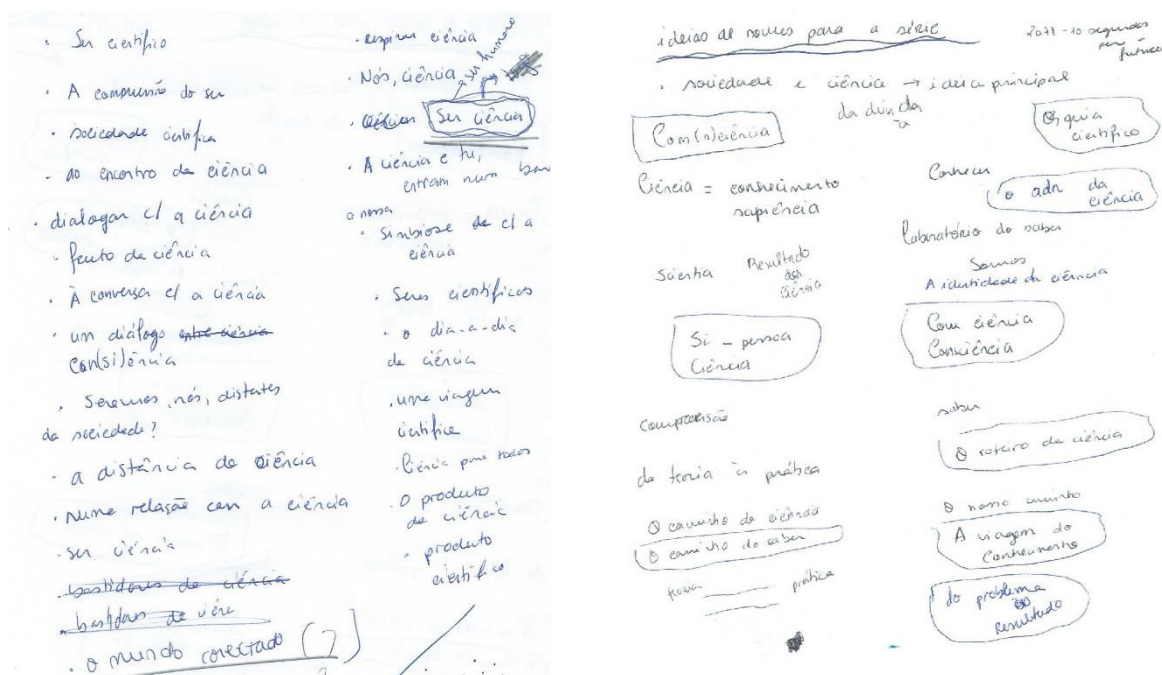 · Ser científico
· A compreensão do ser
· sociedade científica
· ao encontro da ciência
· dialogar c/ a ciência
· fruto da ciência
· À conversa c/ a ciência
· um diálogo entre ciência
con(si)ência
· Seremos, nós, distantes
da sociedade?
· a distância da ciência
· numa relação com a ciência
· ser ciência
· bastidores da ciência
· bastidores da
· o mundo conectado (?)
· respirar ciência
· Nós, ciência
ser humano
Ser ciência
· A ciência e tu,
entram num bar
a nossa
· simbiose de c/ a
ciência
· Seres científicos
· o dia-a-dia
da ciência
· uma viagem
científica
· Ciência para todos
· O produto
da ciência
· produto
científico
ideias de nomes para a série
2071 - 10 segundos
para
futuro
· sociedade e ciência → ideia principal
da dúvida
à
Com(n)ciência
científico
Ciência = conhecimento
sapiência
Conhecer
o adn da
ciência
Laboratório do saber
Scientia
Resultado
da
ciência
Somos
A identidade da ciência
Si - pessoa
Ciência
Com ciência
Consciência
compreensão
saber
O roteiro da ciência
da teoria à prática
O caminho da ciência
O caminho do saber
O nosso caminho
A viagem do
Conhecimento
teoria prática
do problema
ao
Resultado